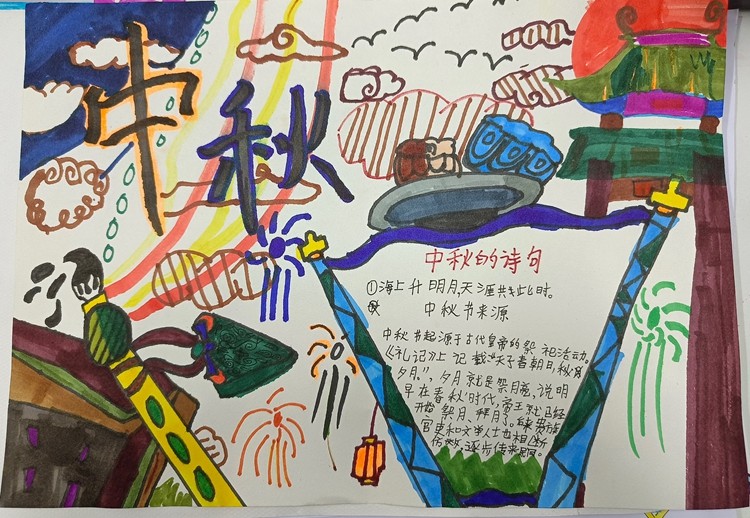 中秋
中秋的诗句
①海上升明月,天涯共此时。
中秋节来源
中秋节起源于古代皇帝的祭祀活动。
《礼记》上记载"天子春朝日,秋
夕月",夕月就是祭月亮,说明
早在春秋时代,帝王就已经
开始祭月、拜月了。后来贵族
官吏和文学人士也相继
仿效,逐步传来民间。